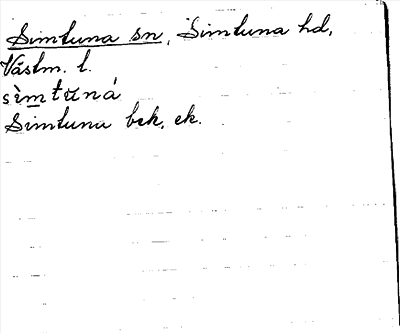 Simtuna sn, Simtuna hd,
Västm. l.
sìmtuná
Simtuna bek, ek.